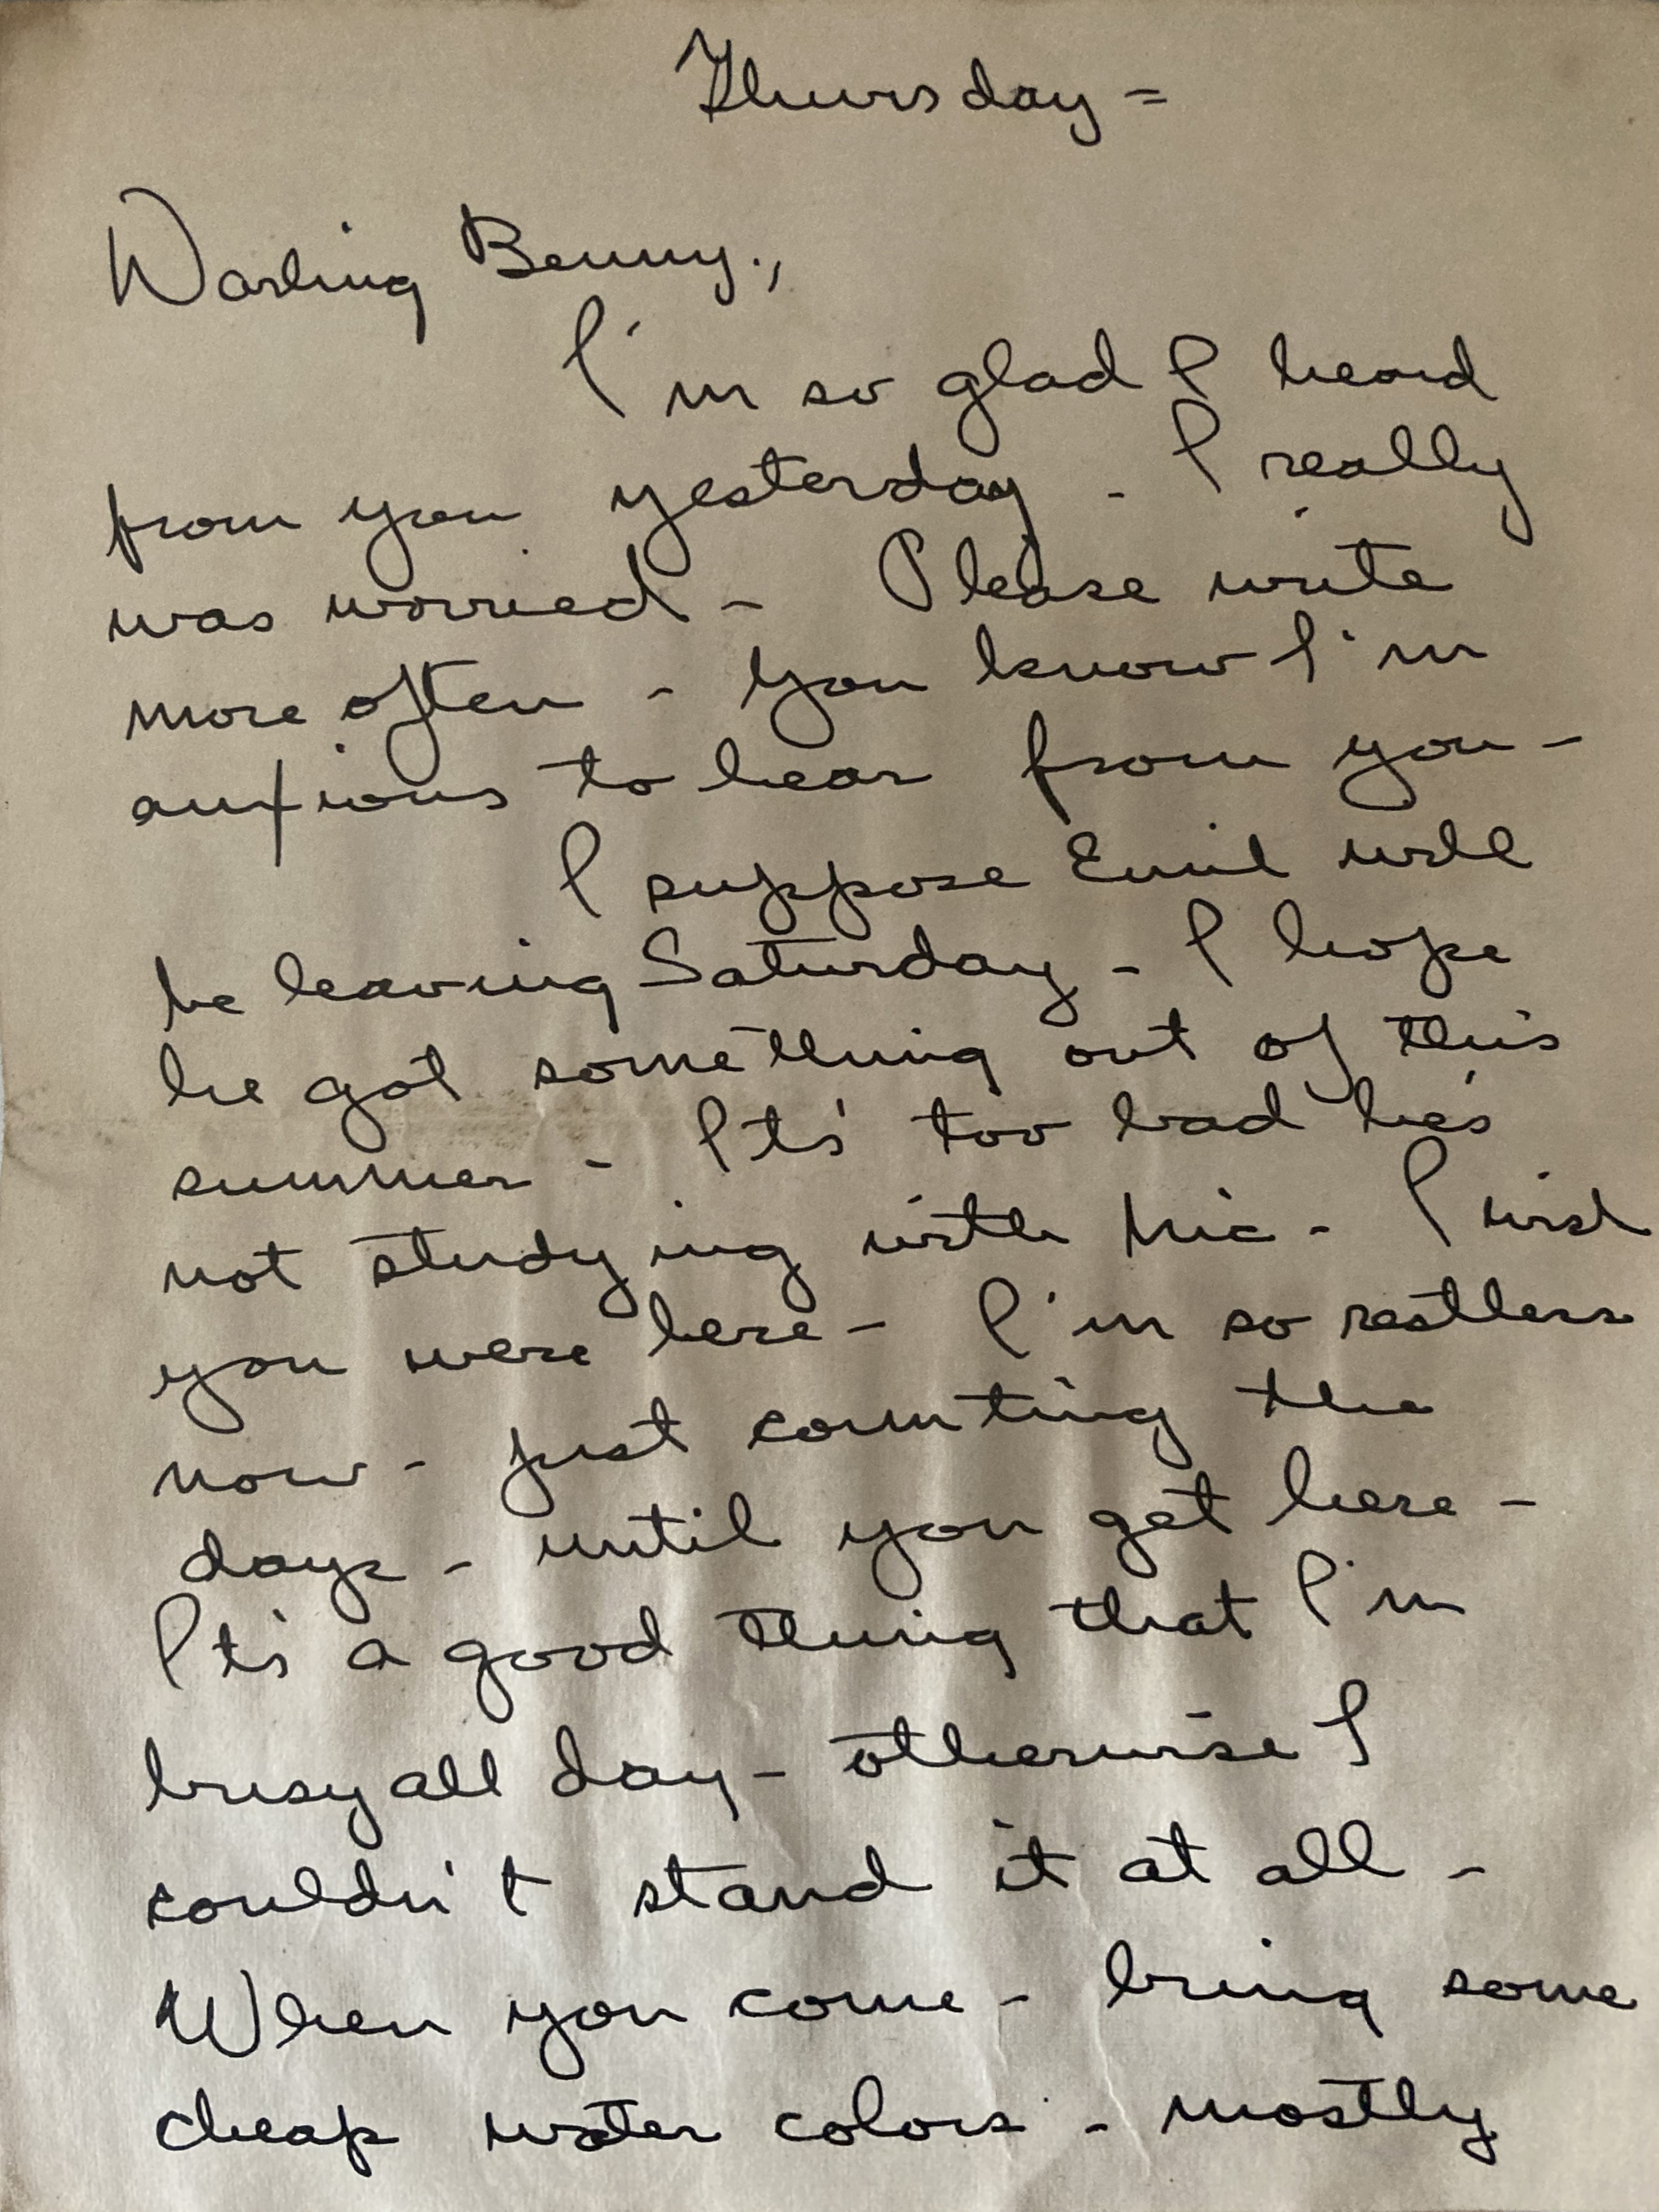 Thursday =
Darling Benny.,
I'm so glad I heard
from you yesterday - I really
was worried - Please write
more often - You know I'm
anxious to hear from you -
I suppose Emil will
be leaving Saturday - I hope
he got something out of this
summer - It's too bad he's
not studying with Mic - I wish
you were here - I'm so restless
now - just counting the
days - until you get here -
It's a good thing that I'm
busy all day - otherwise I
couldn't stand it at all -
When you come - bring some
cheap water colors - mostly